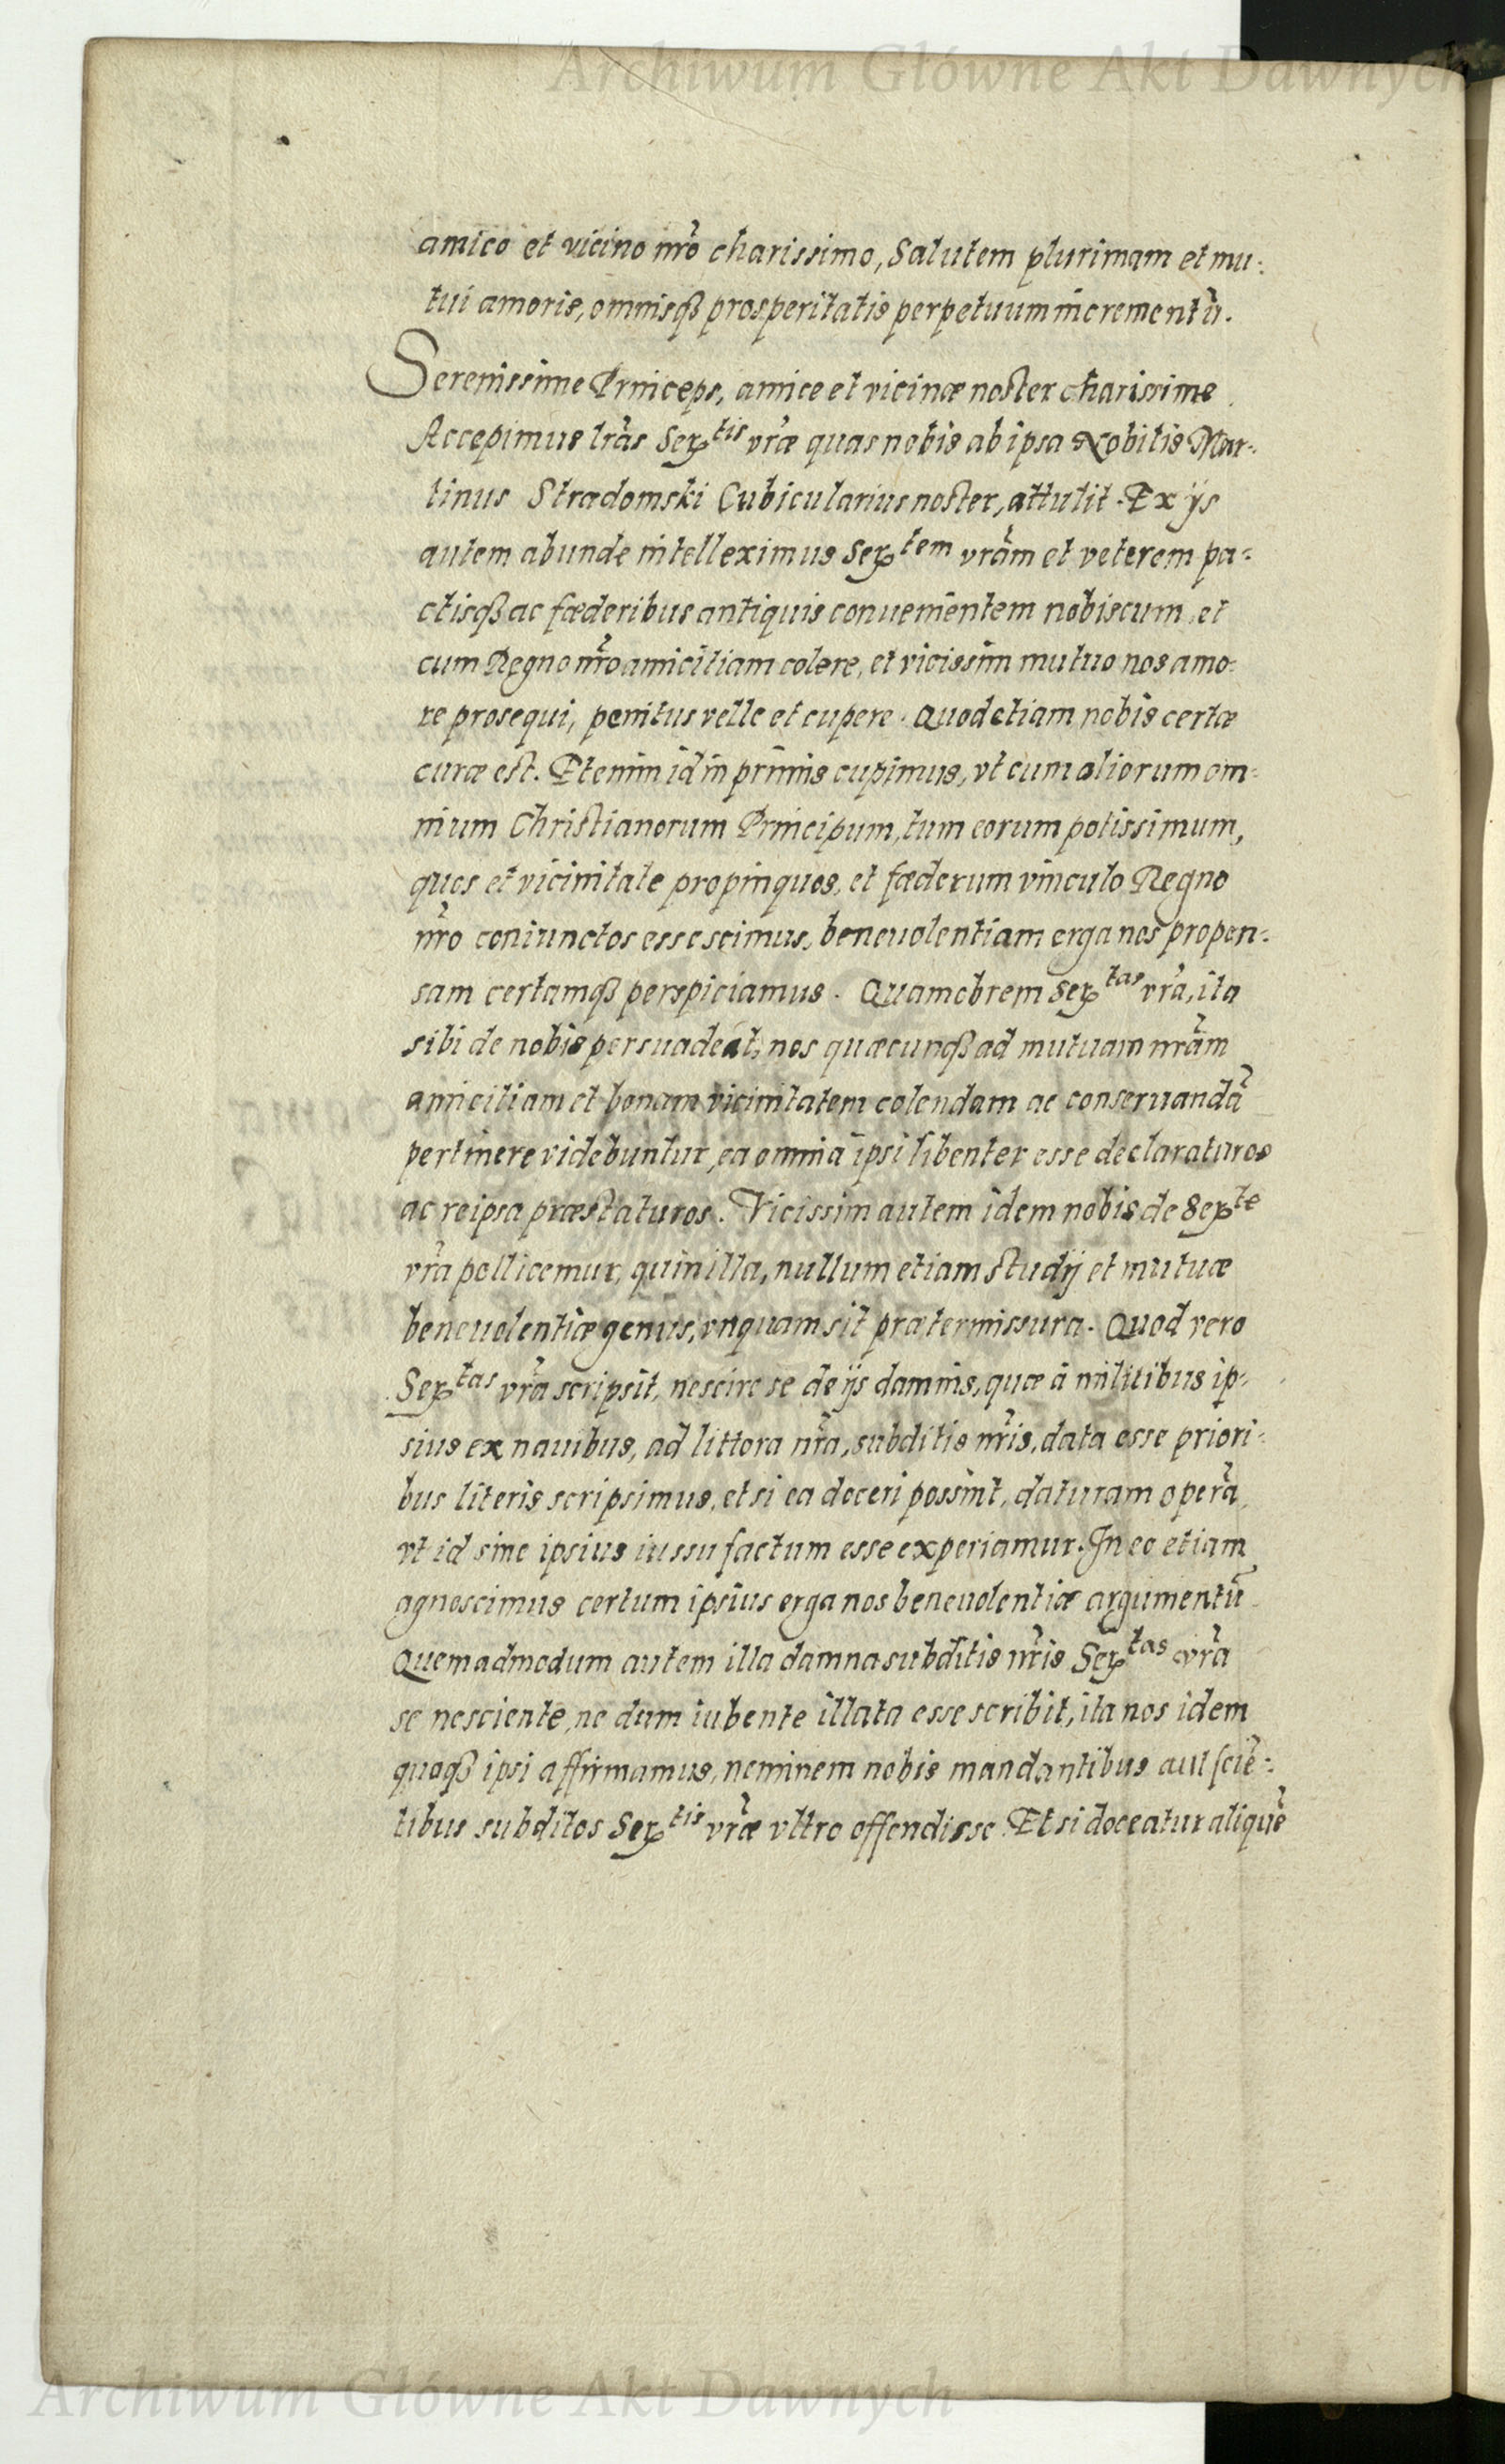 Archiwum Główne Akt Dawnych
amico et vicino nr̃o charissimo, Salutem plurimam et mu-
tui amoris, omnisqꝫ prosperitatis perpetuum incrementũ.
Serenissime Princeps, amice et vicinæ noster charissime
Accepimus lr̃as Serᵗⁱˢ vr̃æ quas nobis ab ipsa Nobilis Mar-
tinus Stradomski Cubicularius noster, attulit. Ex ijs
autem abunde intelleximus Serᵗᵉᵐ vr̃am et veterem pa-
ctisqꝫ ac fœderibus antiquis conuenientem nobiscum, et
cum Regno nr̃o amicitiam colere, et vicissim mutuo nos amo-
re prosequi, penitus velle et cupere. Quod etiam nobis certæ
curæ est. Etenim id in primis cupimus, vt cum aliorum om-
nium Christianorum Principum, tum eorum potissimum,
quos et vicinitate propinquos, et fœderum vinculo Regno
nr̃o coniunctos esse scimus, beneuolentiam erga nos propen-
sam certamqꝫ perspiciamus. Quamobrem Serᵗᵃˢ vr̃a, ita
sibi de nobis persuadeat, nos quæcunqꝫ ad mutuam nr̃am
amicitiam et bonam vicinitatem colendam ac conseruandã
pertinere videbuntur, ea omnia ipsi libenter esse declaraturos
ac reipsa præstaturos. Vicissim autem idem nobis de Serᵗᵉ
vr̃a pollicemur, quin illa, nullum etiam studij et mutuæ
beneuolentiæ genus, vnquam sit prætermissura. Quod vero
Serᵗᵃˢ vr̃a scripsit, nescire se de ijs damnis, quæ à militibus ip-
sius ex nauibus, ad littora nr̃a, subditis nr̃is, data esse priori-
bus literis scripsimus, et si ea doceri possint, daturam operã,
vt id sine ipsius iussu factum esse experiamur. In eo etiam
agnoscimus certum ipsius erga nos beneuolentiæ argumentũ
Quemadmodum autem illa damna subditis nr̃is Serᵗᵃˢ vr̃a
se nesciente, ne dum iubente illata esse scribit, ita nos idem
quoqꝫ ipsi affirmamus, neminem nobis mandantibus aut sciẽ-
tibus subditos Serᵗⁱˢ vr̃æ vltro offendisse. Et si doceatur aliquẽ
Archiwum Główne Akt Dawnych